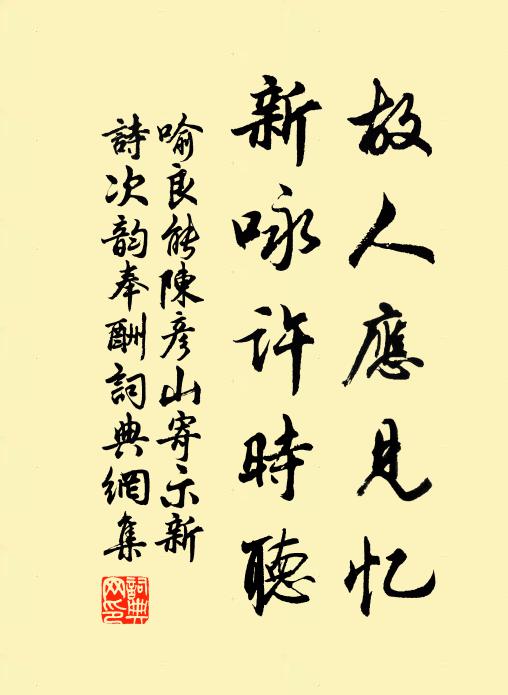 故人應見忆
新咏许時聽
喻良能陳彦山寄示新
詩次韵奉酬詞典網集
詞典網印